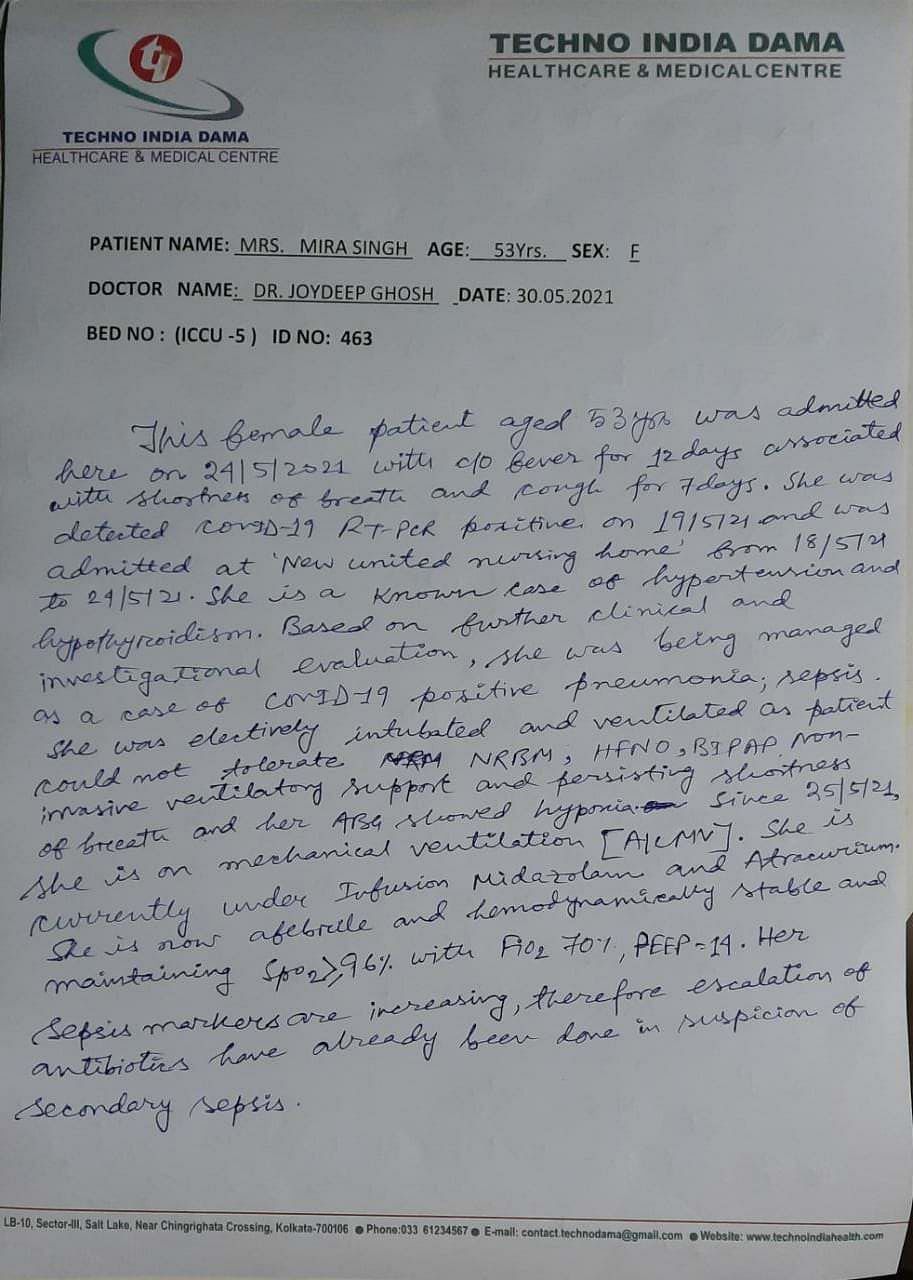 TECHNO INDIA DAMA
HEALTHCARE & MEDICAL CENTRE
TECHNO INDIA DAMA
HEALTHCARE & MEDICAL CENTRE
PATIENT NAME: MRS. MIRA SINGH AGE: 53Yrs. SEX: F
DOCTOR NAME: DR. JOYDEEP GHOSH DATE: 30.05.2021
BED NO : (ICCU -5 ) ID NO: 463
This female patient aged 53yrs was admitted
here on 24/5/2021 with c/o fever for 12 days associated
with shortness of breath and cough for 7 days. She was
detected COVID-19 RT-PCR positive on 19/5/21 and was
admitted at 'New united nursing home' from 18/5/21
to 24/5/21. She is a known case of hypertension and
hypothyroidism. Based on further clinical and
investigational evaluation, she was being managed
as a case of COVID-19 positive pneumonia; sepsis.
She was electively intubated and ventilated as patient
could not tolerate NRBM, HFNO, BIPAP, Non-
invasive ventilatory support and persisting shortness
of breath and her ABG showed hypoxia. Since 25/5/21,
She is on mechanical ventilation [A/CMV]. She is
currently under Infusion Midazolam and Atracurium.
She is now afebrile and hemodynamically stable and
maintaining SpO2 ≥ 96% with FiO2 70%, PEEP-14. Her
sepsis markers are increasing, therefore escalation of
antibiotics have already been done in suspicion of
secondary sepsis.
LB-10, Sector-III, Salt Lake, Near Chingrighata Crossing, Kolkata-700106 ● Phone:033 61234567 ● E-mail: contact.technodama@gmail.com ● Website: www.technoindiahealth.com